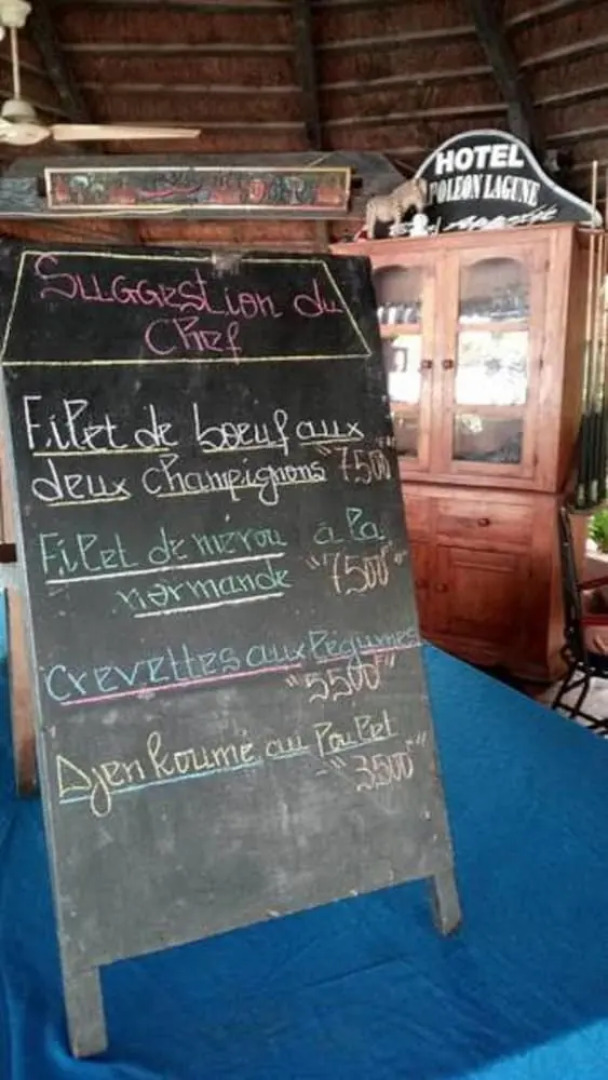 HOTEL
POLEON LAGUNE
Suggestion du
Chef
Filet de boeuf aux
deux champignons "7500F"
Filet de mérou à la
normande "7500F"
Crevettes aux légumes
"5500F"
Djenkoumé au Poulet
"3500F"